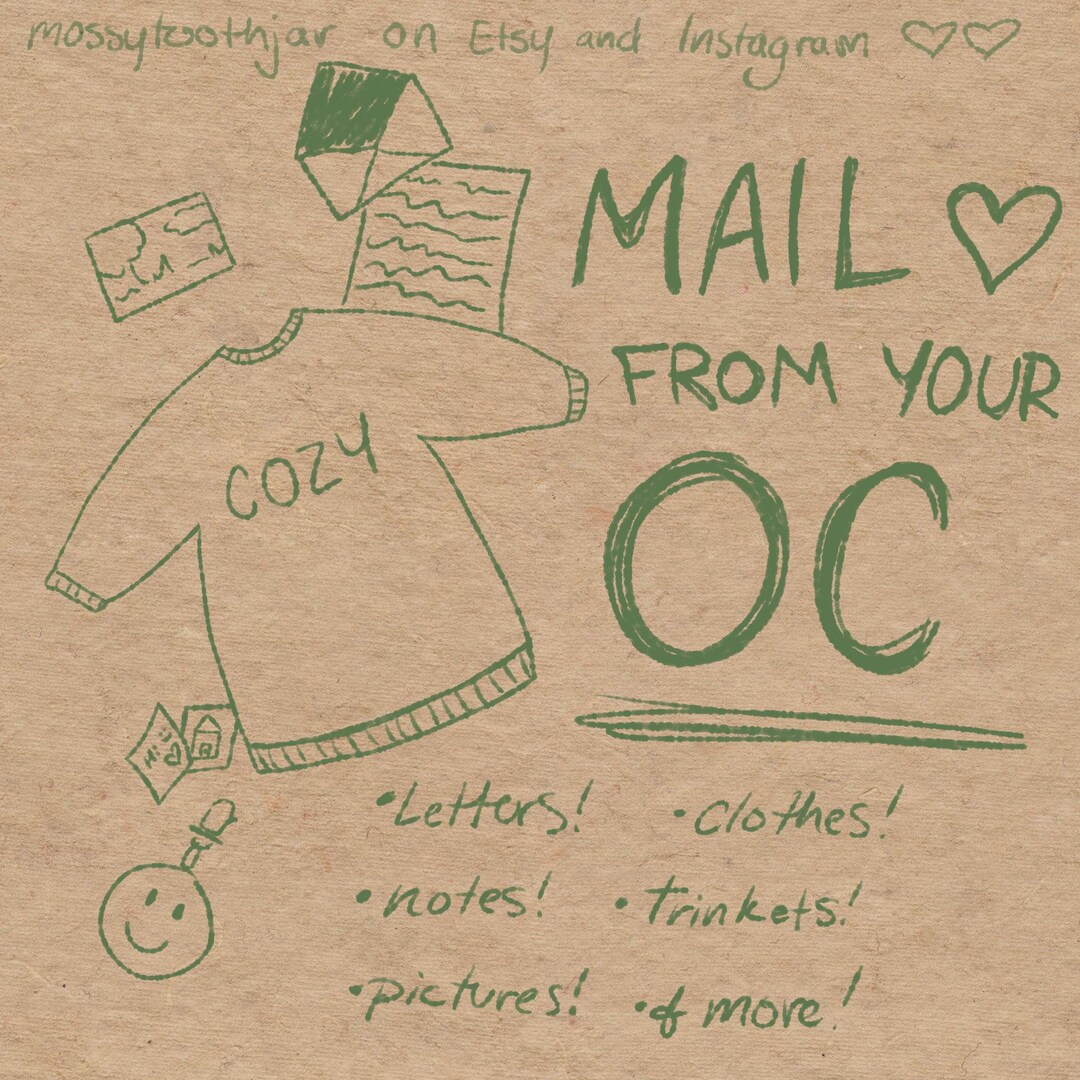 mossytoothjar on Etsy and Instagram ♡♡
MAIL ♡
FROM YOUR
OC
COZY
Hi
•Letters! •Clothes!
•notes! •Trinkets!
•pictures! •& more!